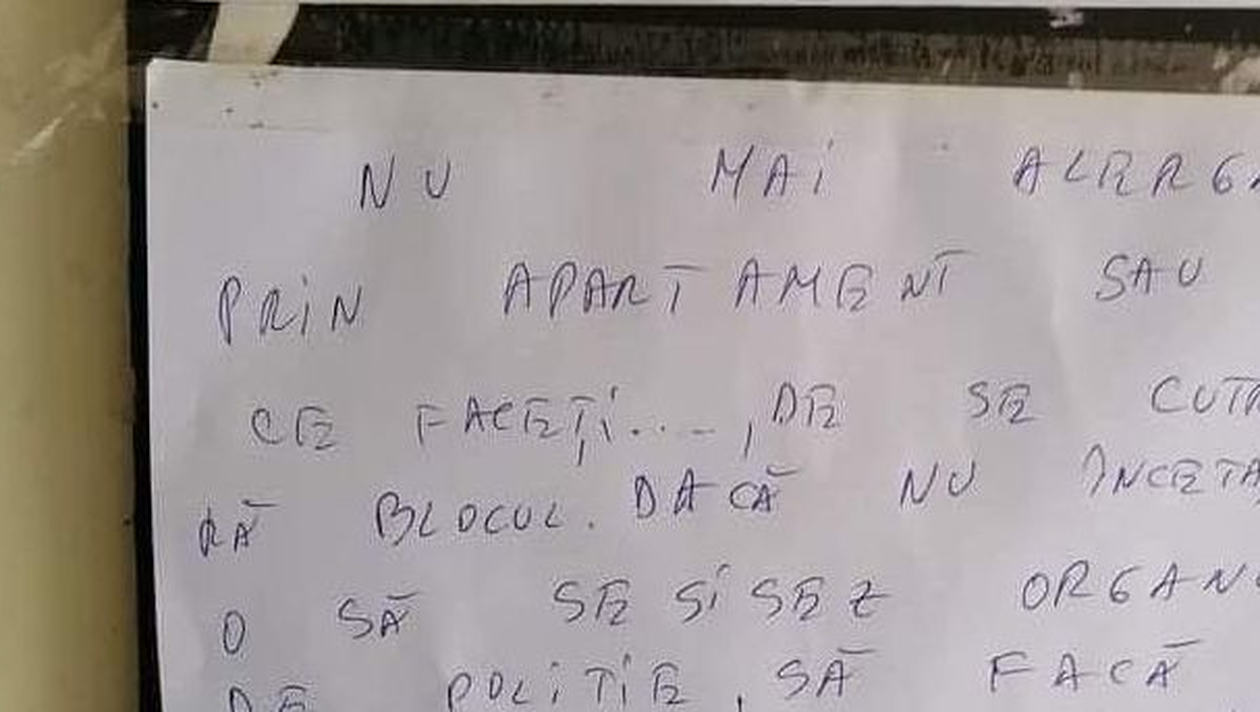 NU MAI ALERGA
PRIN APARTAMENT SAU
CE FACEȚI...., DE SE CUTR
RĂ BLOCUL. DACĂ NU ÎNCETA
O SĂ SESISEZ ORGAN
DE POLITIE, SĂ FACĂ